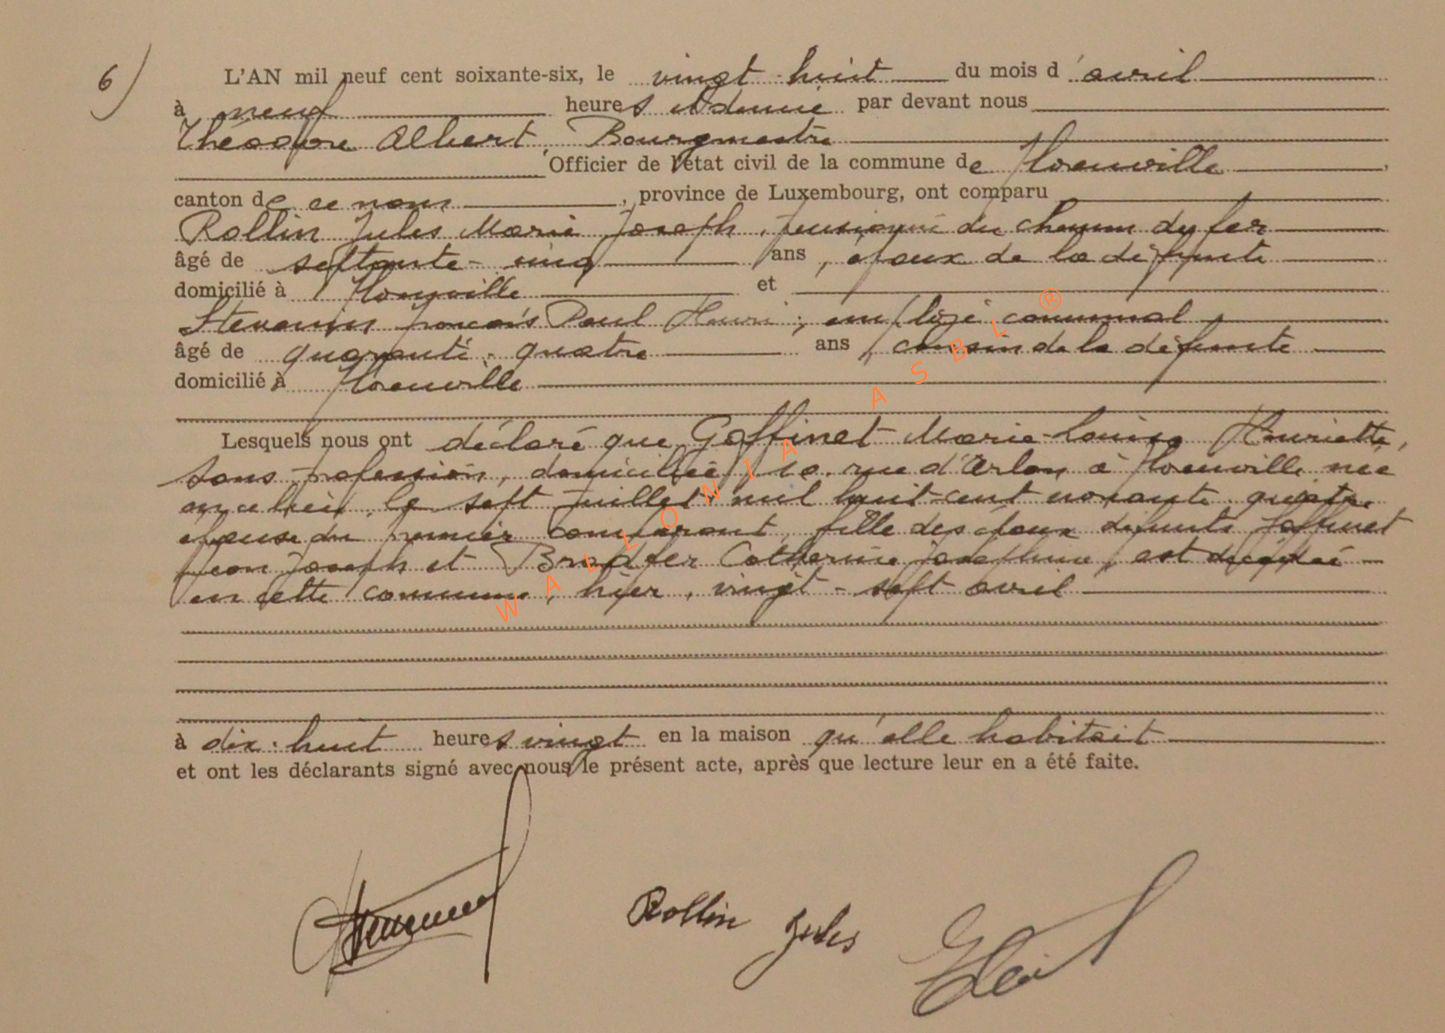 6) L'AN mil neuf cent soixante-six, le vingt-huit du mois d'avril
à neuf heures et demie par devant nous
Théodore Albert Bourgmestre
Officier de l'état civil de la commune de Florenville,
canton de ce nom, province de Luxembourg, ont comparu
Rollin Jules Marie Joseph, pensionné du chemin du fer
âgé de septante-cinq ans, époux de la défunte
domicilié à Florenville et
Stevenin François Paul Henri, employé communal
âgé de quarante-quatre ans, cousin de la défunte
domicilié à Florenville
Lesquels nous ont déclaré que Goffinet Marie-Louise Henriette,
sans profession, domiciliée, 10, rue d'Arlon à Florenville, née
en ce lieu, le sept juillet mil huit-cent nonante-quatre,
épouse du premier comparant, fille des époux défunts Goffinet
Jean Joseph et Bradfer Catherine Joséphine, est décédée
en cette commune, hier, vingt-sept avril
à dix-huit heures vingt en la maison qu'elle habitait
et ont les déclarants signé avec nous le présent acte, après que lecture leur en a été faite.
Rollin Jules
WALLONIA ASBL ®